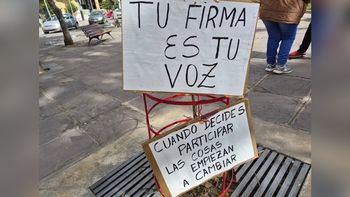 TU FIRMA
ES TU
VOZ
CUANDO DECIDES
PARTICIPAR
LAS COSAS
EMPIEZAN
A CAMBIAR